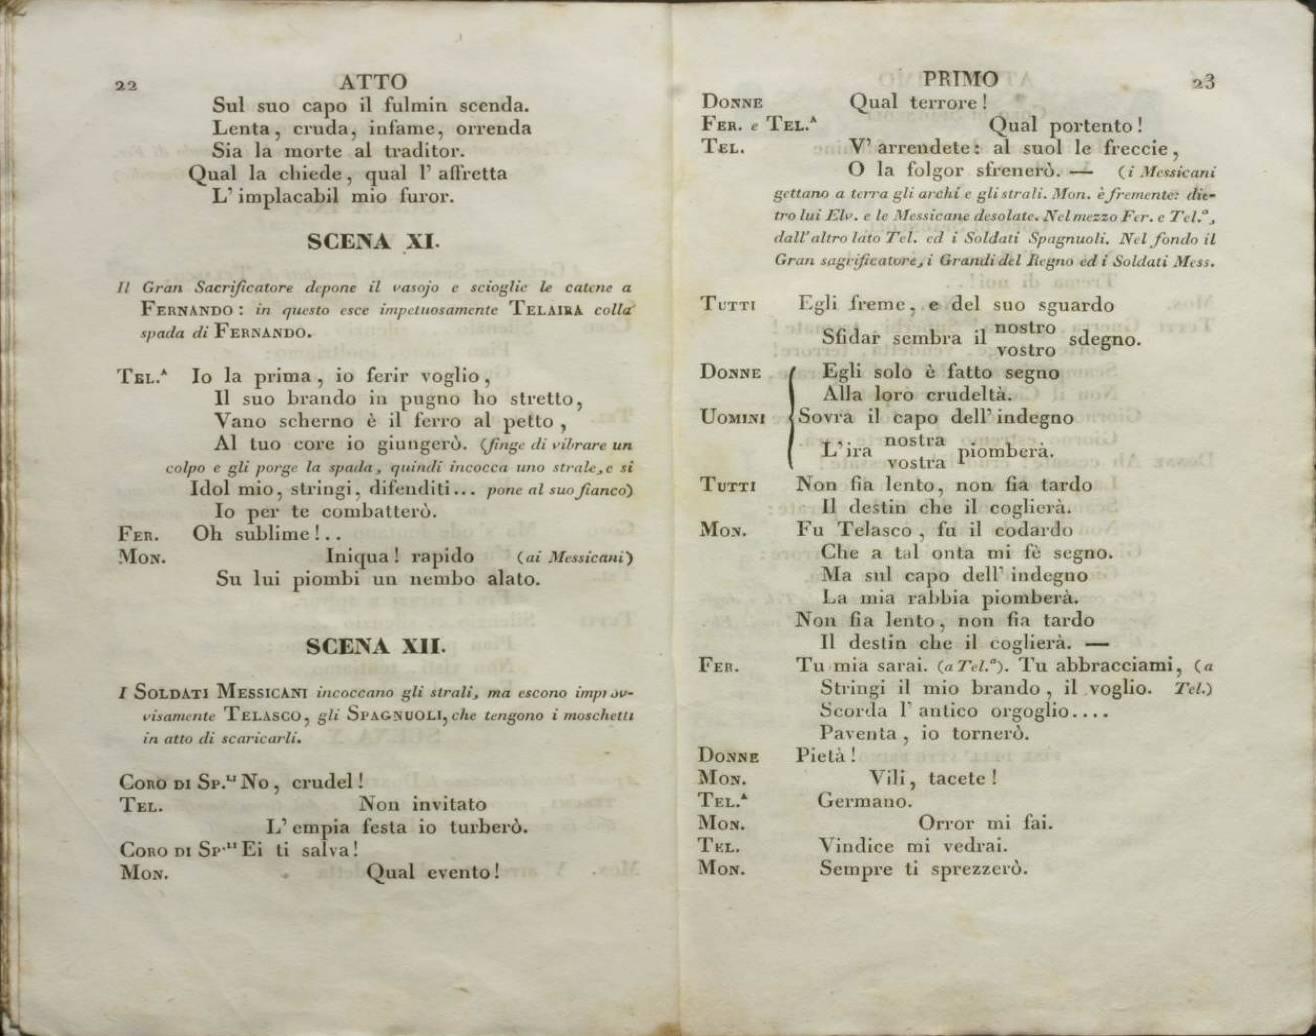 22 ATTO
Sul suo capo il fulmin scenda.
Lenta, cruda, infame, orrenda
Sia la morte al traditor.
Qual la chiede, qual l' affretta
L' implacabil mio furor.
SCENA XI.
Il Gran Sacrificatore depone il vasojo e scioglie le catene a
FERNANDO: in questo esce impetuosamente TELAIRA colla
spada di FERNANDO.
TEL.ᴬ Io la prima, io ferir voglio,
Il suo brando in pugno ho stretto,
Vano scherno è il ferro al petto,
Al tuo core io giungerò. (finge di vibrare un
colpo e gli porge la spada, quindi incocca uno strale, e si
Idol mio, stringi, difenditi... pone al suo fianco)
Io per te combatterò.
FER. Oh sublime!..
MON. Iniqua! rapido (ai Messicani)
Su lui piombi un nembo alato.
SCENA XII.
I SOLDATI MESSICANI incoccano gli strali, ma escono improv-
visamente TELASCO, gli SPAGNUOLI, che tengono i moschetti
in atto di scaricarli.
CORO DI SP.ˡⁱ No, crudel!
TEL. Non invitato
L' empia festa io turberò.
CORO DI SP.ˡⁱ Ei ti salva!
MON. Qual evento!
PRIMO 23
DONNE Qual terrore!
FER. e TEL.ᴬ Qual portento!
TEL. V' arrendete: al suol le freccie,
O la folgor sfrenerò. — (i Messicani
gettano a terra gli archi e gli strali. Mon. è fremente: die-
tro lui Elv. e le Messicane desolate. Nel mezzo Fer. e Tel.ª,
dall' altro lato Tel. ed i Soldati Spagnuoli. Nel fondo il
Gran sagrificatore, i Grandi del Regno ed i Soldati Mess.
TUTTI Egli freme, e del suo sguardo
Sfidar sembra il nostro sdegno.
vostro
DONNE Egli solo è fatto segno
Alla loro crudeltà.
UOMINI Sovra il capo dell' indegno
L' ira nostra piomberà.
vostra
TUTTI Non fia lento, non fia tardo
Il destin che il coglierà.
MON. Fu Telasco, fu il codardo
Che a tal onta mi fè segno.
Ma sul capo dell' indegno
La mia rabbia piomberà.
Non fia lento, non fia tardo
Il destin che il coglierà. —
FER. Tu mia sarai. (a Tel.ª). Tu abbracciami, (a
Stringi il mio brando, il voglio. Tel.)
Scorda l' antico orgoglio....
Paventa, io tornerò.
DONNE Pietà!
MON. Vili, tacete!
TEL.ᴬ Germano.
MON. Orror mi fai.
TEL. Vindice mi vedrai.
MON. Sempre ti sprezzerò.